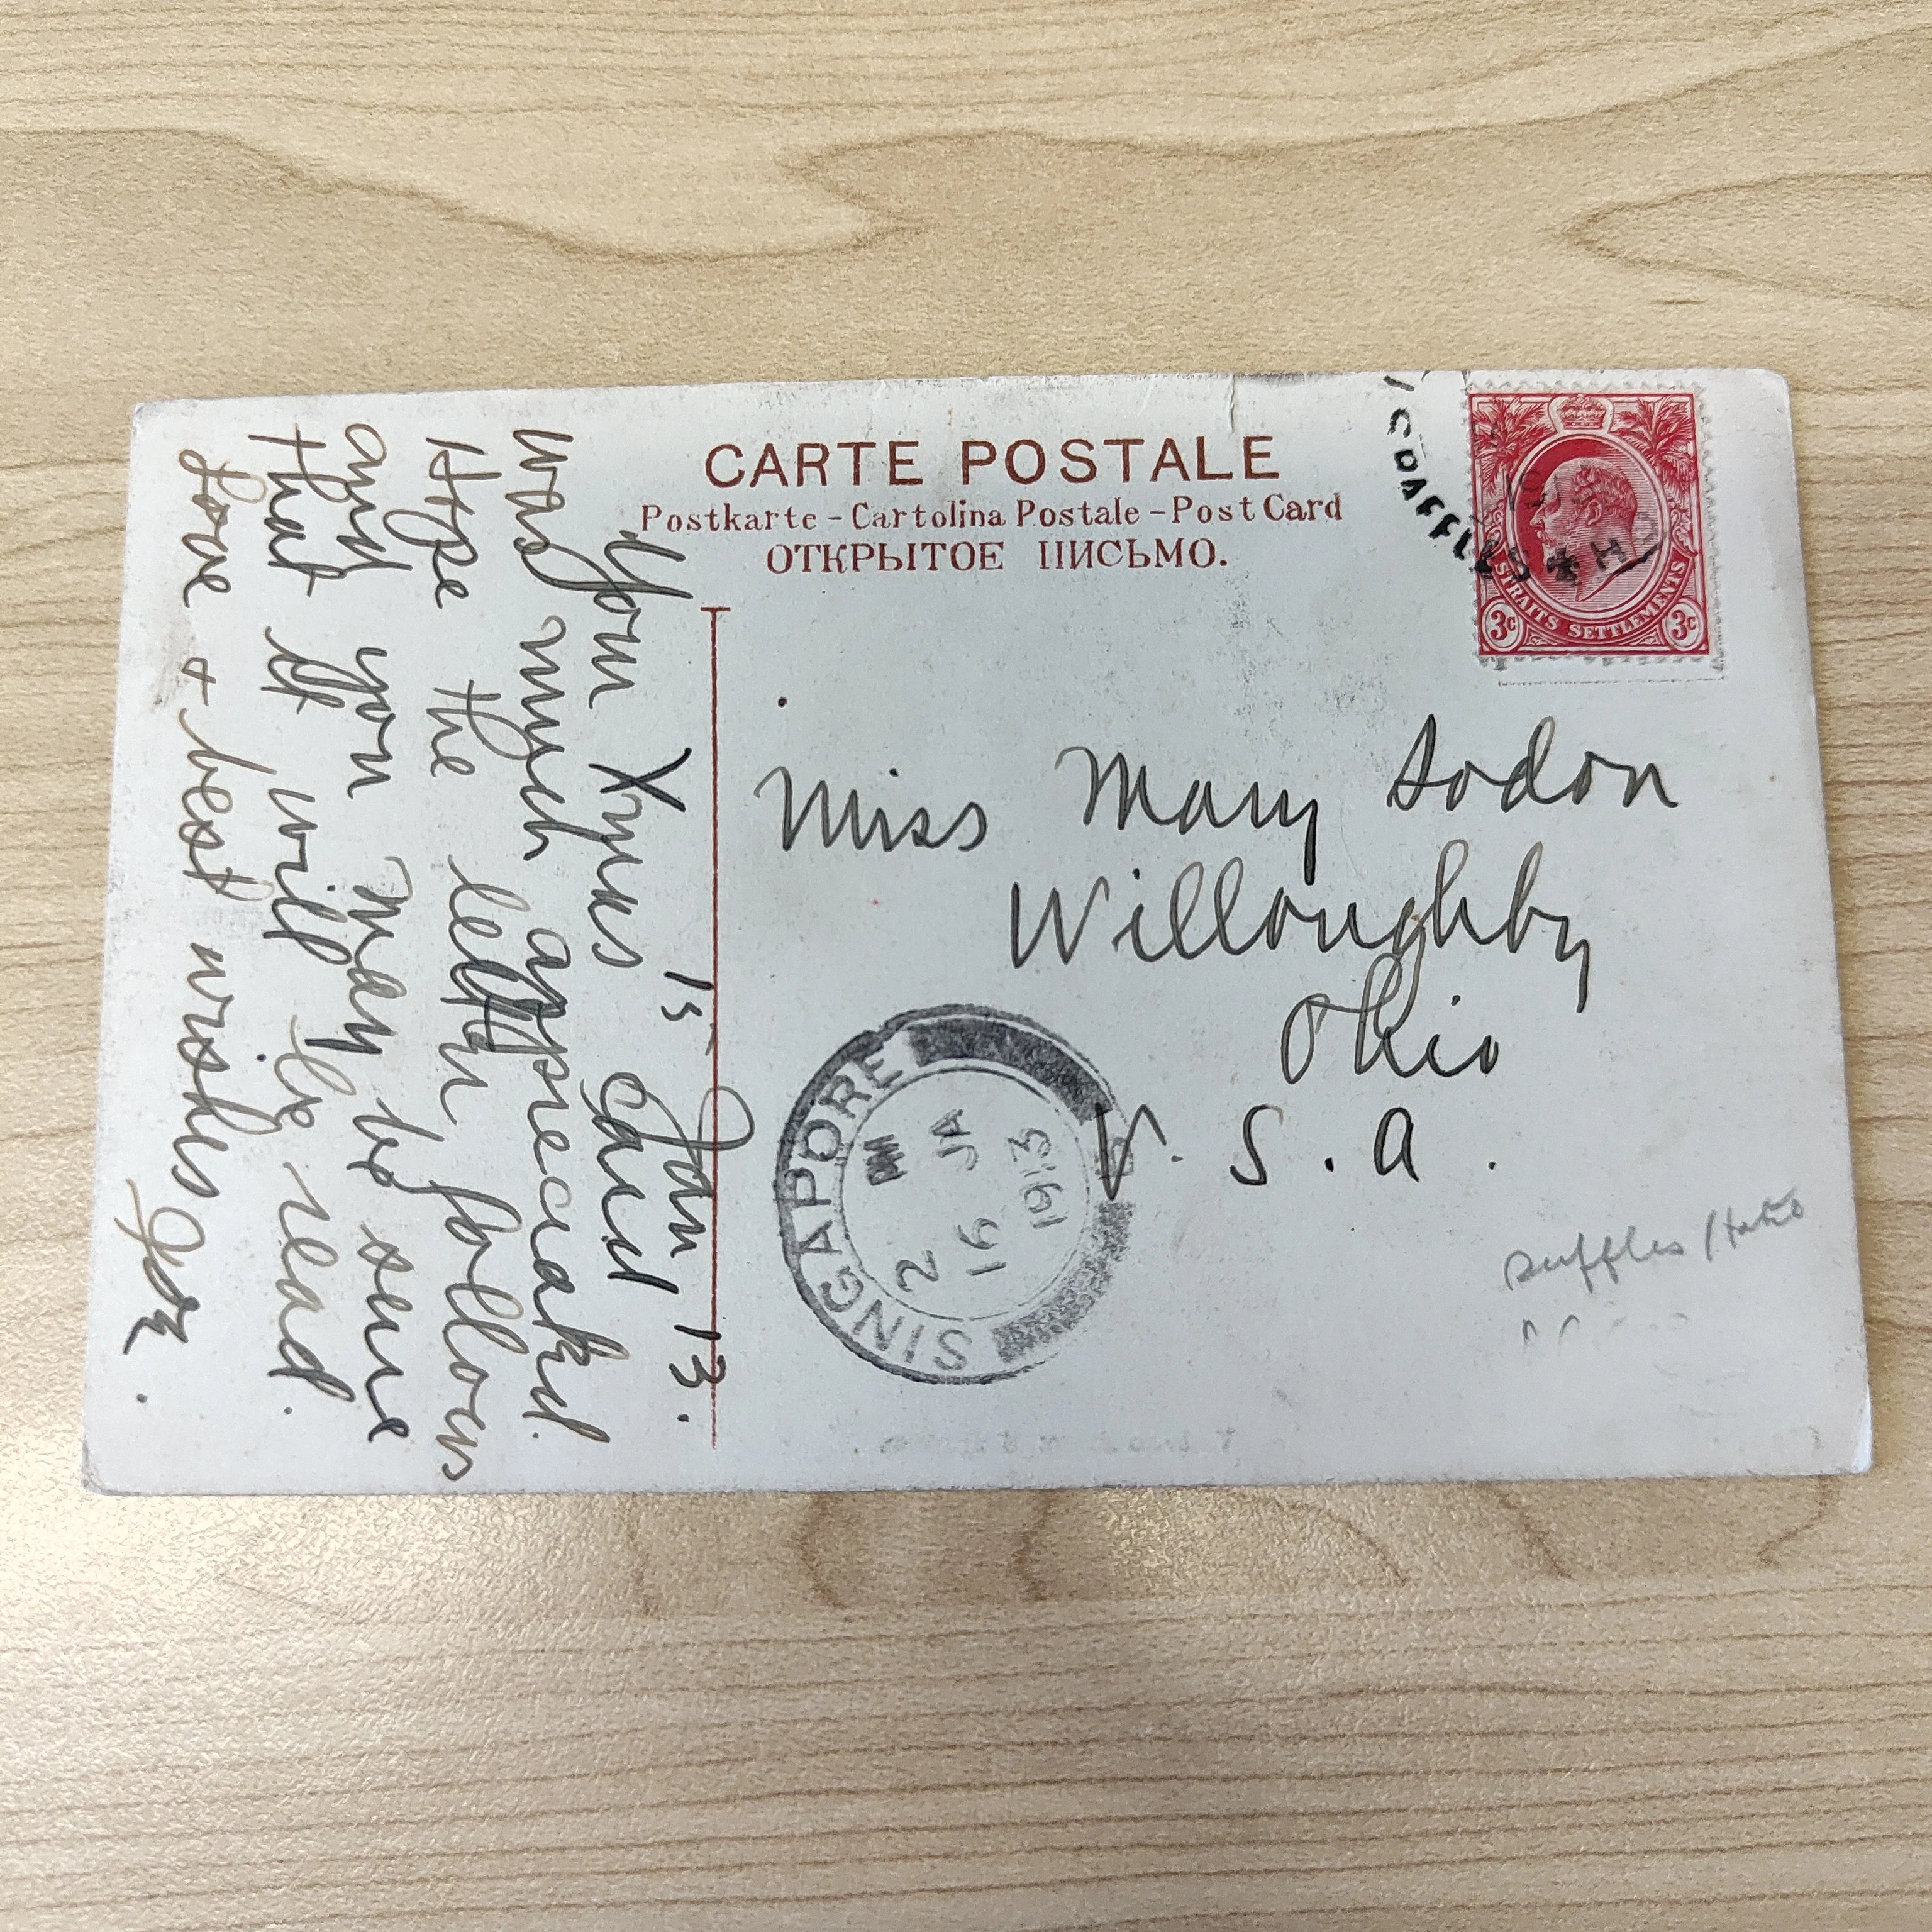 CARTE POSTALE
Postkarte – Cartolina Postale – Post Card
ОТКРЫТОЕ ПИСЬМО.
RAFFLES * HO
STRAITS SETTLEMENTS
3c 3c
Miss Mary
Willoughby
Ohio
U. S. A.
SINGAPORE
2 PM
16 JA
1913
Raffles Hotel
15 Jan 13.
Your Xmas card
was much appreciated.
Hope the letter follows
and you may be sure
that it will be read.
Love + best wishes